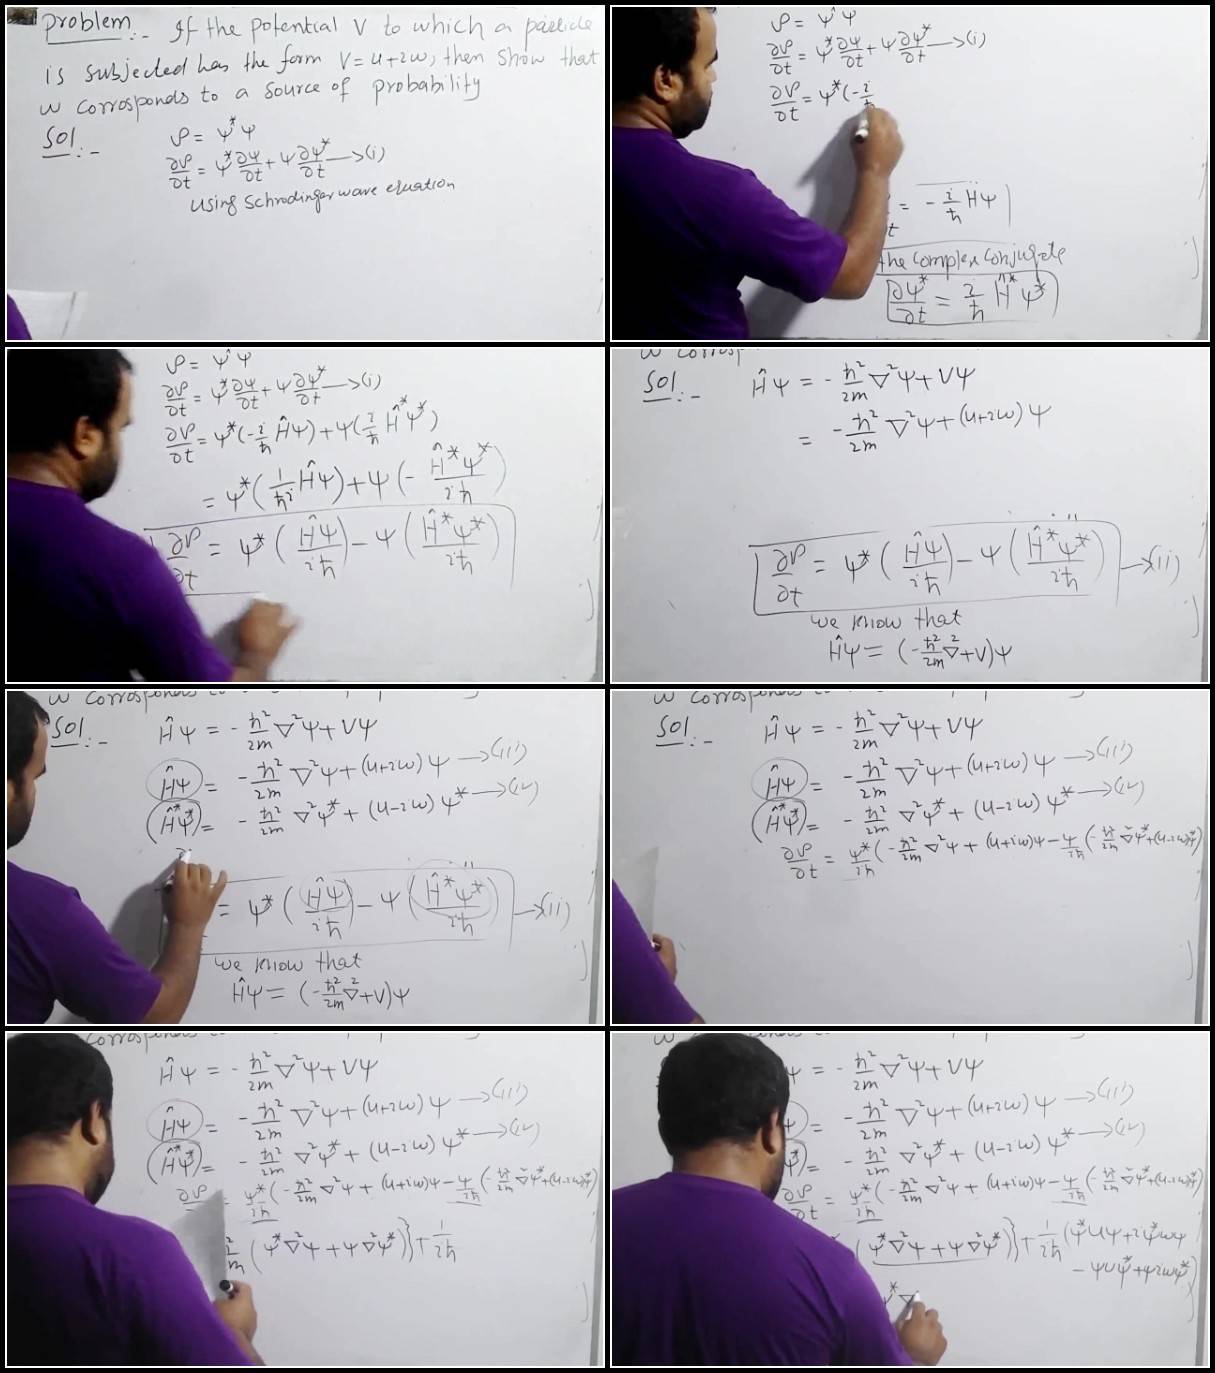 problem:- If the potential V to which a particle
is subjected has the form V=u+iw, then show that
w corrosponds to a source of probability
Sol:-
ρ = ψ*ψ
∂ρ/∂t = ψ*∂ψ/∂t + ψ∂ψ*/∂t →(i)
using Schrodinger wave equation
ρ = ψ*ψ
∂ρ/∂t = ψ*∂ψ/∂t + ψ∂ψ*/∂t →(i)
∂ρ/∂t = ψ*(-i/ħ
= -i/ħ Hψ
the complex conjugate
∂ψ*/∂t = i/ħ Ĥ*ψ*
ρ = ψ*ψ
∂ρ/∂t = ψ*∂ψ/∂t + ψ∂ψ*/∂t →(i)
∂ρ/∂t = ψ*(-i/ħ Ĥψ) + ψ(i/ħ Ĥ*ψ*)
= ψ*(1/ħi Ĥψ) + ψ(-Ĥ*ψ*/iħ)
∂ρ/∂t = ψ*(Ĥψ/iħ) - ψ(Ĥ*ψ*/iħ)
w corrosp
Sol:-
Ĥψ = -ħ²/2m ∇²ψ + Vψ
= -ħ²/2m ∇²ψ + (u+iw)ψ
∂ρ/∂t = ψ*(Ĥψ/iħ) - ψ(Ĥ*ψ*/iħ) →(ii)
we know that
Ĥψ = (-ħ²/2m ∇²+V)ψ
w corrosponds to
Sol:-
Ĥψ = -ħ²/2m ∇²ψ + Vψ
Ĥψ = -ħ²/2m ∇²ψ + (u+iw)ψ →(iii)
Ĥ*ψ* = -ħ²/2m ∇²ψ* + (u-iw)ψ* →(iv)
= ψ*(Ĥψ/iħ) - ψ(Ĥ*ψ*/iħ) →(ii)
we know that
Ĥψ = (-ħ²/2m ∇²+V)ψ
w corrosponds
Sol:-
Ĥψ = -ħ²/2m ∇²ψ + Vψ
Ĥψ = -ħ²/2m ∇²ψ + (u+iw)ψ →(iii)
Ĥ*ψ* = -ħ²/2m ∇²ψ* + (u-iw)ψ* →(iv)
∂ρ/∂t = ψ*/iħ(-ħ²/2m ∇²ψ + (u+iw)ψ - ψ/iħ(-ħ²/2m ∇²ψ*+(u-iw)ψ*)
corrosponds
Ĥψ = -ħ²/2m ∇²ψ + Vψ
Ĥψ = -ħ²/2m ∇²ψ + (u+iw)ψ →(iii)
Ĥ*ψ* = -ħ²/2m ∇²ψ* + (u-iw)ψ* →(iv)
∂ρ = ψ*/iħ(-ħ²/2m ∇²ψ + (u+iw)ψ - ψ/iħ(-ħ²/2m ∇²ψ*+(u-iw)ψ*)
(ψ*∇²ψ + ψ∇²ψ*)} + 1/iħ
ψ = -ħ²/2m ∇²ψ + Vψ
= -ħ²/2m ∇²ψ + (u+iw)ψ →(iii)
= -ħ²/2m ∇²ψ* + (u-iw)ψ* →(iv)
∂ρ/∂t = ψ*/iħ(-ħ²/2m ∇²ψ + (u+iw)ψ - ψ/iħ(-ħ²/2m ∇²ψ*+(u-iw)ψ*)
(ψ*∇²ψ + ψ∇²ψ*)} + 1/iħ(ψ*uψ+iψ*wψ
-ψuψ*+ψiwψ*)
ψ*∇